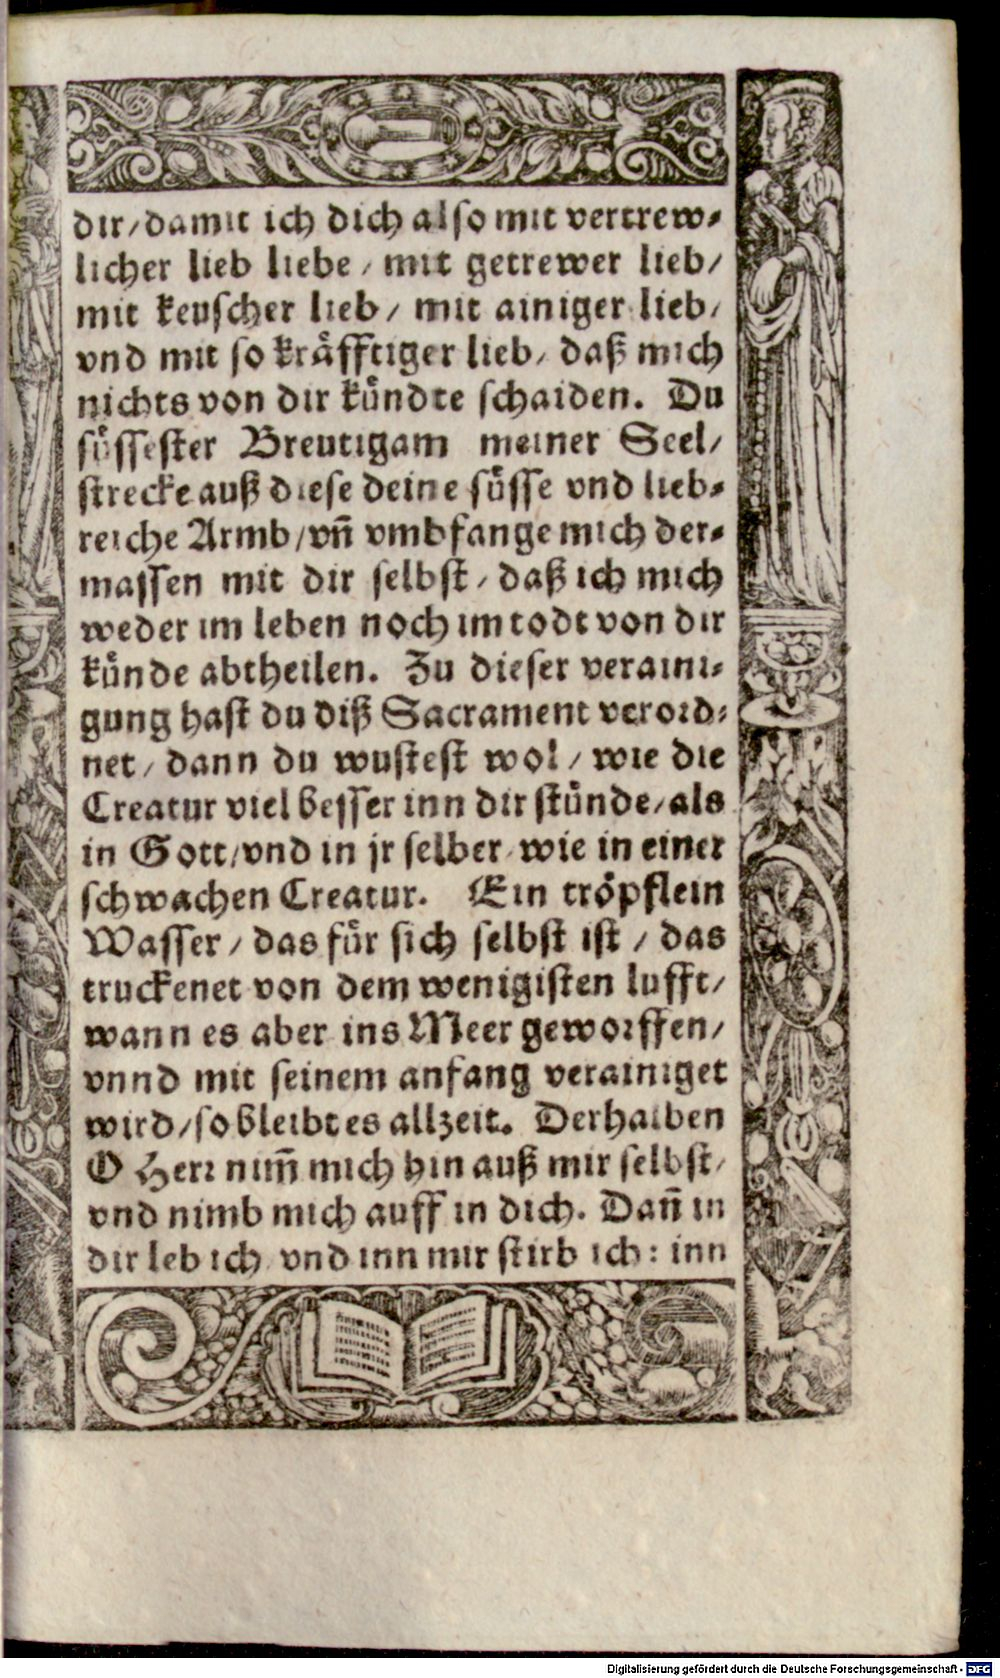 dir/damit ich dich also mit vertrew⸗
licher lieb liebe / mit getrewer lieb/
mit keuscher lieb/ mit ainiger lieb/
vnd mit so kräfftiger lieb/ daß mich
nichts von dir kůndte schaiden. Du
sůssester Breutigam meiner Seel/
strecke auß diese deine sůsse vnd lieb⸗
reiche Armb/vñ vmbfange mich der⸗
massen mit dir selbst/ daß ich mich
weder im leben noch im todt von dir
kůnde abtheilen. Zu dieser veraini⸗
gung hast du diß Sacrament verord⸗
net/ dann du wustest wol/ wie die
Creatur viel besser inn dir stůnde/als
in Gott/vnd in jr selber wie in einer
schwachen Creatur. Ein tröpflein
Wasser/ das fůr sich selbst ist / das
truckenet von dem wenigisten lufft/
wann es aber ins Meer geworffen/
vnnd mit seinem anfang verainiget
wird/so bleibt es allzeit. Derhalben
O Herr nim̃ mich hin auß mir selbst/
vnd nimb mich auff in dich. Dañ in
dir leb ich vnd inn mir stirb ich: inn
Digitalisierung gefördert durch die Deutsche Forschungsgemeinschaft - DFG